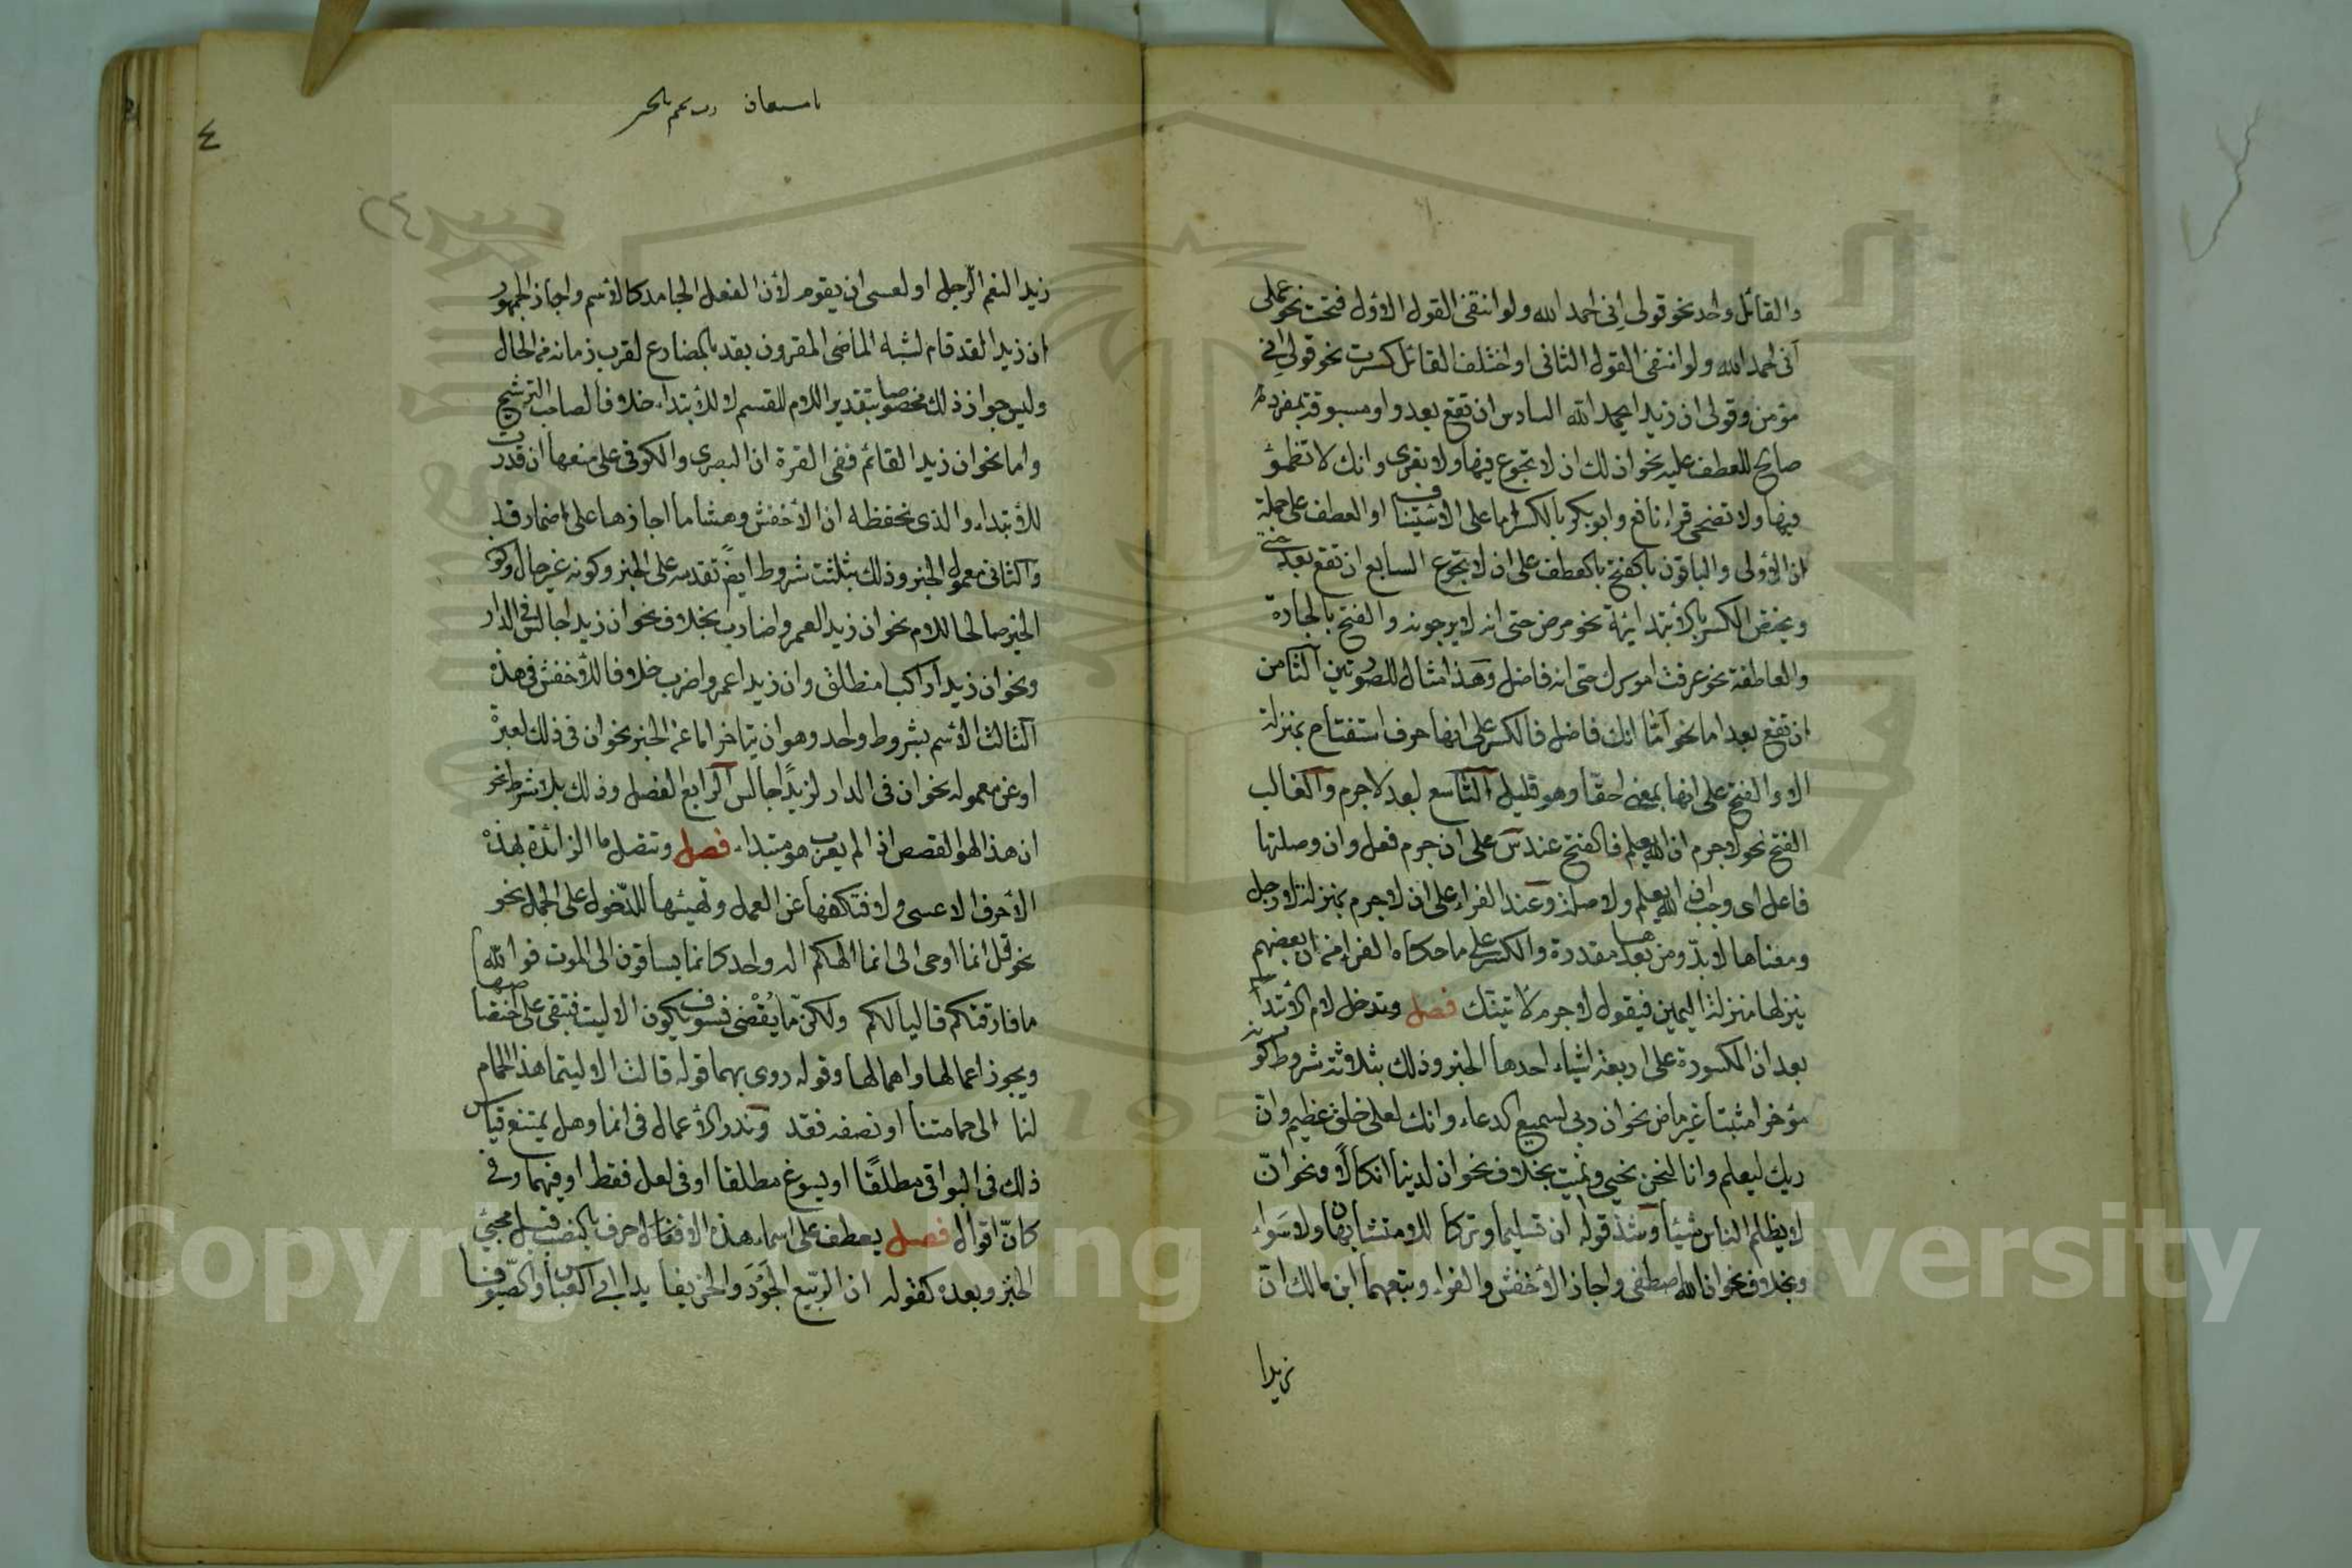 والقائل واحد نحو قولى انى احمد الله ولو انتفى القول الاول فتحت نحو عملى
انى احمد الله ولو انتفى القول الثانى او اختلف القائل كسرت نحو قولى انى
مؤمن وقولى ان زيدا يحمد الله السادس ان تقع بعد واو مسبوقة بمفرد
صالح للعطف عليه نحو ان لك ان لا تجوع فيها ولا تعرى وانك لا تظمؤ
فيها ولا تضحى قراء نافع وابو بكر بالكسر اما على الاستيناف او العطف على جملة
ان الأولى والباقون بالفتح بالعطف على ان لا تجوع السابع ان تقع بعد حتى
ويختص الكسر بالأبتدائية نحو مرض حتى انه لا يرجونه والفتح بالجارة
والعاطفة نحو عرفت امورك حتى انه فاضل وهذا مثال للصورتين الثامن
ان تقع بعد اما نحو امّا انك فاضل فالكسر على انها حرف استفتاح بمنزلة
الا والفتح على انها بمعنى احقّا وهو قليل التّاسع بعد لا جرم والغالب
الفتح نحو لا جرم ان الله يعلم فالفتح عند س على ان جرم فعل وان وصلتها
فاعل اى وجب ان الله يعلم ولا صلة وعند الفراء على ان لا جرم بمنزلة لا رجل
ومعناها لا بدّ ومن بعدها مقدرة والكسر على ما حكاه الفراء من ان بعضهم
ينزلها منزلة اليمين فيقول لا جرم لآتينّك فصل وتدخل لام الأبتداء
بعد ان المكسورة على اربعة اشياء احدها الخبر وذلك بثلاثة شروط كونه
مؤخرا مثبتا غير ماض نحو ان ربى لسميع الدعاء وانك لعلى خلق عظيم وان
ربك ليعلم وانا لنحن نحيى ونميت بخلاف نحو ان لدينا انكالًا ونحو انّ
لا يظلم الناس شيئا وشذ قوله ان تسليما وتركا للا متشابهان ولا سَواء
وبخلاف نحو ان الله اصطفى واجاز الأخفش والفراء وتبعهما ابن مالك انّ
زيدا
٤
زيدا لنعم الرّجل او لعسى ان يقوم لأن الفعل الجامد كالأسم واجاز الجمهور
ان زيدا لقد قام لشبه الماضى المقرون بقد بالمضارع لقرب زمانه من الحال
وليس جواز ذلك مخصوصا بتقدير اللام للقسم لا للأبتداء خلافا لصاحب الترشيح
واما نحو ان زيدا لقائم ففى الغرة ان البصرى والكوفى على منعها ان قدرت
للأبتداء والذى نحفظه ان الأخفش وهشاما اجازها على اضمار قد
والثانى معمول الخبر وذلك بثلثة شروط ايضً تقدمه على الخبر وكونه غير حال وكون
الخبر صالحا للام نحو ان زيدا لعمروا ضارب بخلاف نحو ان زيدا جالس فى الدار
ونحو ان زيدا راكبا منطلق وان زيدا عمروا ضرب خلافا للأخفش فى هذه
الثالث الأسم بشروط واحد وهو ان يتاخر اما عن الخبر نحو ان فى ذلك لعبرة
او عن معموله نحو ان فى الدار لزيدًا جالس الرابع الفصل وذلك بلا شرط نحو
ان هذا لهو القصص اذا لم يعرب هو مبتداء فصل وتتصل ما الزائدة بهذه
الأحرف الا عسى ولا فتكفها عن العمل وتهيئها للدّخول على الجمل نحو
نحو قل انما اوحى الى انما الهكم اله واحد كانما يساقون الى الموت فوالله
ما فارقتكم قاليا لكم ولكنّ ما يُقْضى فسوف يكون الا ليت فتبقى على اختصاصها
ويجوز اعمالها واهمالها وقوله روى بهما قوله قالت الا ليتما هذا الحمام
لنا الى حمامتنا او نصفه فقد وندر الأعمال فى انما وهل يمتنع قياس
ذلك فى البواقى مطلقًا او يسوغ مطلقا او فى لعل فقط او فيهما وفى
كانّ اقوال فصل يعطف على اسماء هذه الأحرف بالنصب قبل مجئ
الخبر وبعده كقوله ان الرّبيع الجَوْدَ والخريفا يدا ابى العباس والصّيوفا